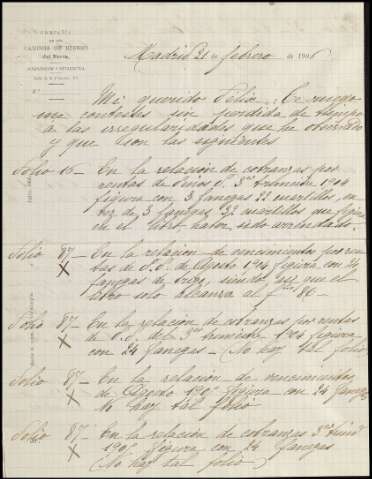 COMPAÑÍA
DE LOS
CAMINOS DE HIERRO
del Norte.
Madrid 21 de febrero de 190
Mi querido Felix: Te ruego
me contestes sin perdida de tiempo
a las irregularidades que he observado
y que son las siguientes
Folio 16 - En la relación de cobranzas por
rentas de 3er trimestre 1904
figura con 3 fanegas 22 cuartillos, en
vez de 3 fanegas 32 cuartillos que figura
en el libro,
Folio 87 - En la relacion de vencimientos por ren-
tas de de Agosto 1904 figura con 24
fanegas de trigo, siendo así que el
libro solo alcanza al fº 86 -
X
Folio 87 - En la relación de cobranzas por rentas
de del 3er trimestre 1904 figura
con 24 fanegas - (No hay tal folio)
X
Folio 87 - En la relación de vencimientos
de Agosto 190 figura con 24 fanegas
No hay tal folio
X
Folio 87 - En la relación de cobranzas 3er trim
190 figura con 24 fanegas
(No hay tal folio)
X